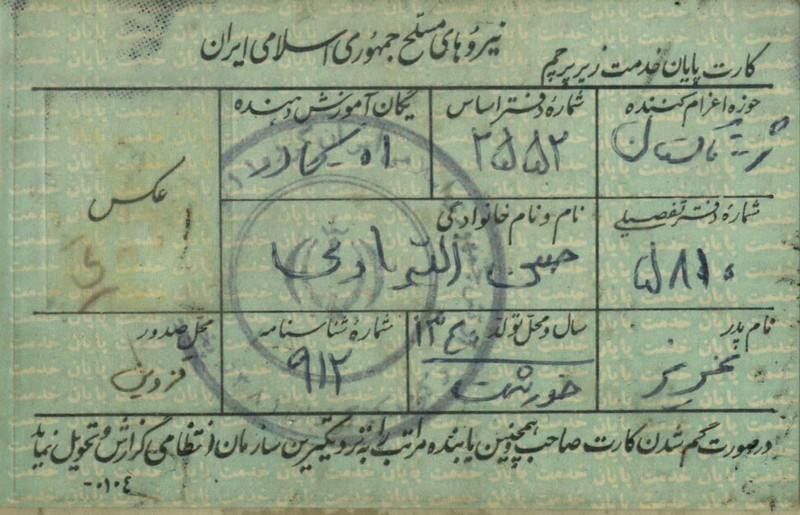 نیروهای مسلح جمهوری اسلامی ایران
کارت پایان خدمت زیر پرچم
حوزه اعزام کننده
شماره دفتر اساس
یگان آموزش دهنده
تاکستان
۲۵۵۲
۵۱
عکس
شماره دفتر تفصیلی
نام و نام خانوادگی
۵۸۱۰
حبیب اله
نام پدر
سال و محل تولد
شماره شناسنامه
محل صدور
عزیز
۹۱۲
قزوین
درصورت گم شدن کارت صاحب و همچنین یابنده مراتب را به نزدیکترین سازمان انتظامی گزارش و تحویل نماید
۰۱۰۴-